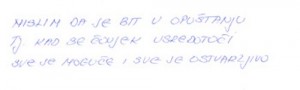 MISLIM DA JE BIT U OPUŠTANJU
TJ. KAD SE ČOVJEK USREDOTOČI
SVE JE MOGUĆE I SVE JE OSTVARLJIVO